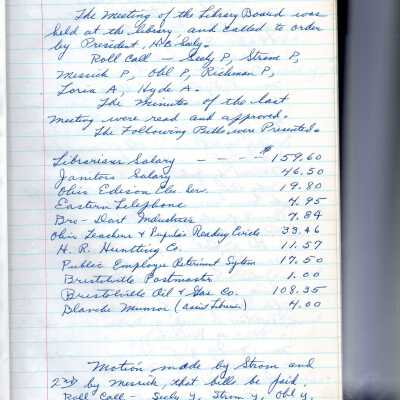 The Meeting of the Library Board was
held at the library, and called to order
by President, H.B. Seely.
Roll Call - Seely P, Strom P,
Messick P, Ohl P, Richman P,
Loria A, Hyde A.
The Minutes of the last
Meeting were read and approved.
The Following Bills were Presented.
Librarians Salary - - - - $159.60
Janitors Salary 46.50
Ohio Edison Ele Ser. 19.80
Eastern Telephone 4.95
Bro-Dart Industries 7.84
Ohio Teachers & Pupils Reading Circle 33.46
H. R. Huntting Co. 11.57
Public Employee Retirement System 17.50
Bristolville Postmaster 1.00
Bristolville Oil & Gas Co. 108.35
Blanche Munson (Asist Librarian) 4.00
Motion made by Strom and
2nd by Messick, that bills be paid.
Roll Call - Seely y, Strom y, Ohl y,